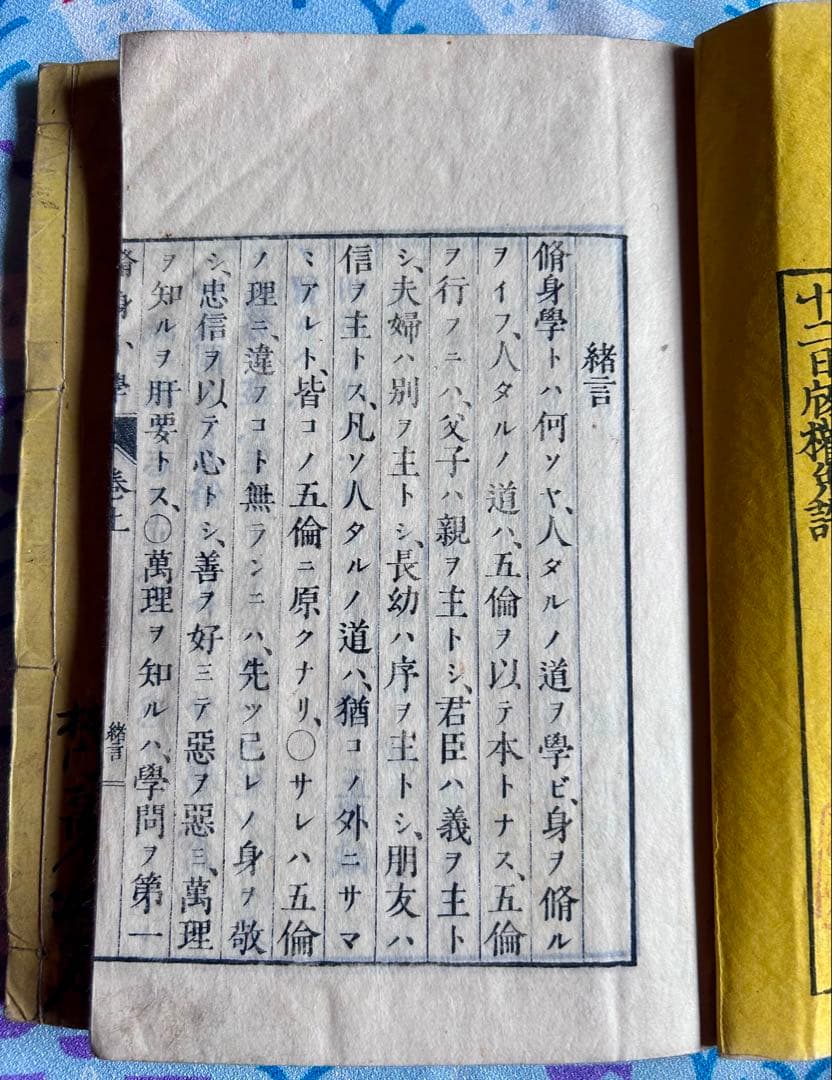 十二日版權免許
緒言
脩身學トハ何ソヤ、人タルノ道ヲ學ビ、身ヲ脩ル
ヲイフ、人タルノ道ハ、五倫ヲ以テ本トナス、五倫
ヲ行フニハ、父子ハ親ヲ主トシ、君臣ハ義ヲ主ト
シ、夫婦ハ別ヲ主トシ、長幼ハ序ヲ主トシ、朋友ハ
信ヲ主トス、凡ソ人タルノ道ハ、猶コノ外ニサマ
〻アレト、皆コノ五倫ニ原クナリ、〇サレハ五倫
ノ理ニ、違フコト無ランニハ、先ツ己レノ身ヲ敬
シ、忠信ヲ以テ心トシ、善ヲ好ミテ惡ヲ惡ミ、萬理
ヲ知ルヲ肝要トス、〇萬理ヲ知ルハ、學問ヲ第一
脩身小學 卷上 緒言